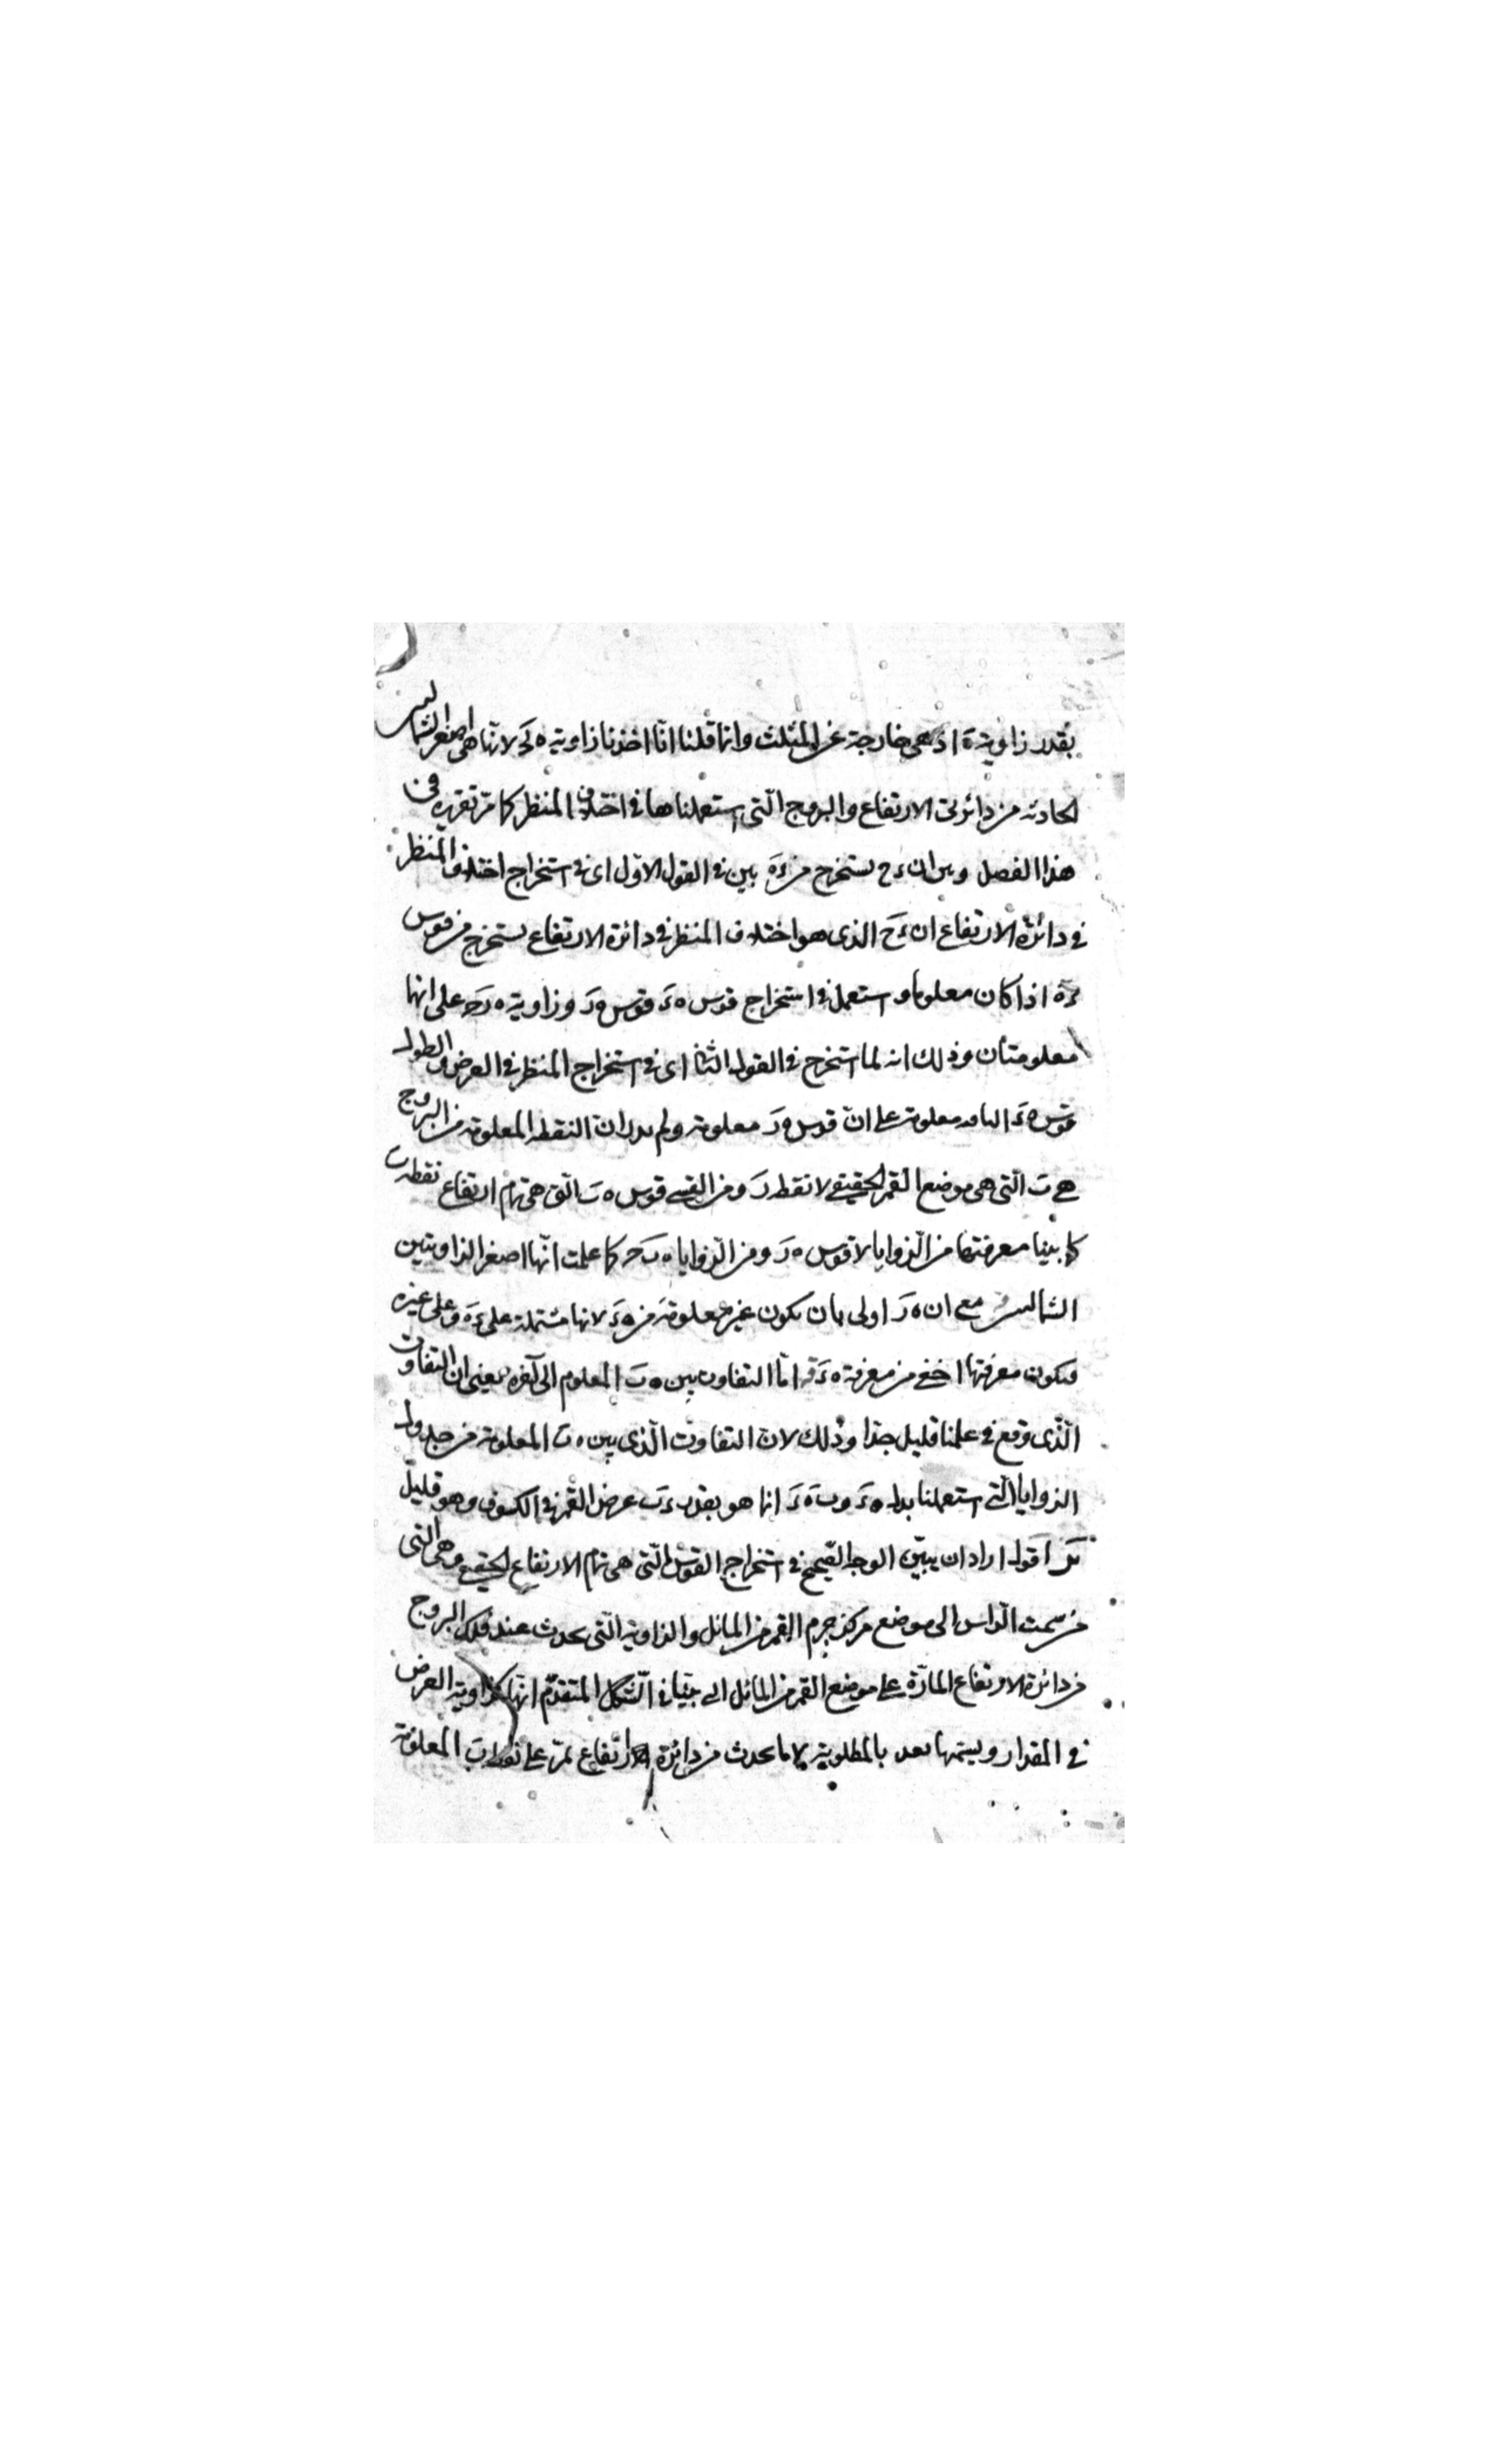 بقدر زاوية ه ا د هى خارجة عن المثلث وانما قلنا انا اخذنا زاوية لانها هى اصغر الشماليتين
الحادثة من دائرتى الارتفاع والبروج التى استعملناها فى اختلاف المنظر كما مر تقريره فى
هذا الفصل وبين ان ءح يستخرج من ءه بين فى القول الاول اى فى استخراج اختلاف المنظر
فى دائرة الارتفاع ان ءح الذى هو اختلاف المنظر فى دائرة الارتفاع يستخرج من قوس
ءه اذا كان معلوما واستعمل فى استخراج قوس ه ء قوس ه ر وزاوية ه ر ح على انها
معلومتان وذلك انه لما استخرج فى القول الثانى اى فى استخراج المنظر فى العرض والطول
قوس ه ء معلومة على ان قوس ه ر معلومة ولم يدر ان النقطة المعلومة من البروج
هى ب التى هى موضع القمر الحقيقى لا نقطة ر ومن القسى قوس ه ب التى هى تمام ارتفاع نقطة ب
كما بينا معرفتها من الزوايا لا قوس ه ر ومن الزوايا ه ب ح كما علمت انها اصغر الزاويتين
الشماليتين مع ان ه ر اولى بان يكون غير معلومة من ه ء لانها مشتملة على ءه وعلى غيره
فيكون معرفتها اخفى من معرفة ه ء قه اما التفاوت بين ه ب المعلوم الى آخره يعنى ان التفاوت
الذى وقع فى علمنا قليل جدا وذلك لان التفاوت الذى بين ه ب المعلومة من جدول
الزوايا التى استعملنا بدل ه ء وب ه ء انما هو بقدر ء ب عرض القمر فى الكسوف وهو قليل
اقول اراد ان يبين الوجه الصحيح فى استخراج القوس التى هى تمام الارتفاع الحقيقى وهى التى
من سمت الراس الى موضع مركز جرم القمر من المائل والزاوية التى يحدث عند فلك البروج
من دائرة الارتفاع المارة على موضع القمر من المائل التى بينا فى الشكل المتقدم انها كزاوية العرض
فى المقدار ويسميها بعد بالمطلوبة لا ما يحدث من دائرة الارتفاع تمر على نقطة ب المعلومة